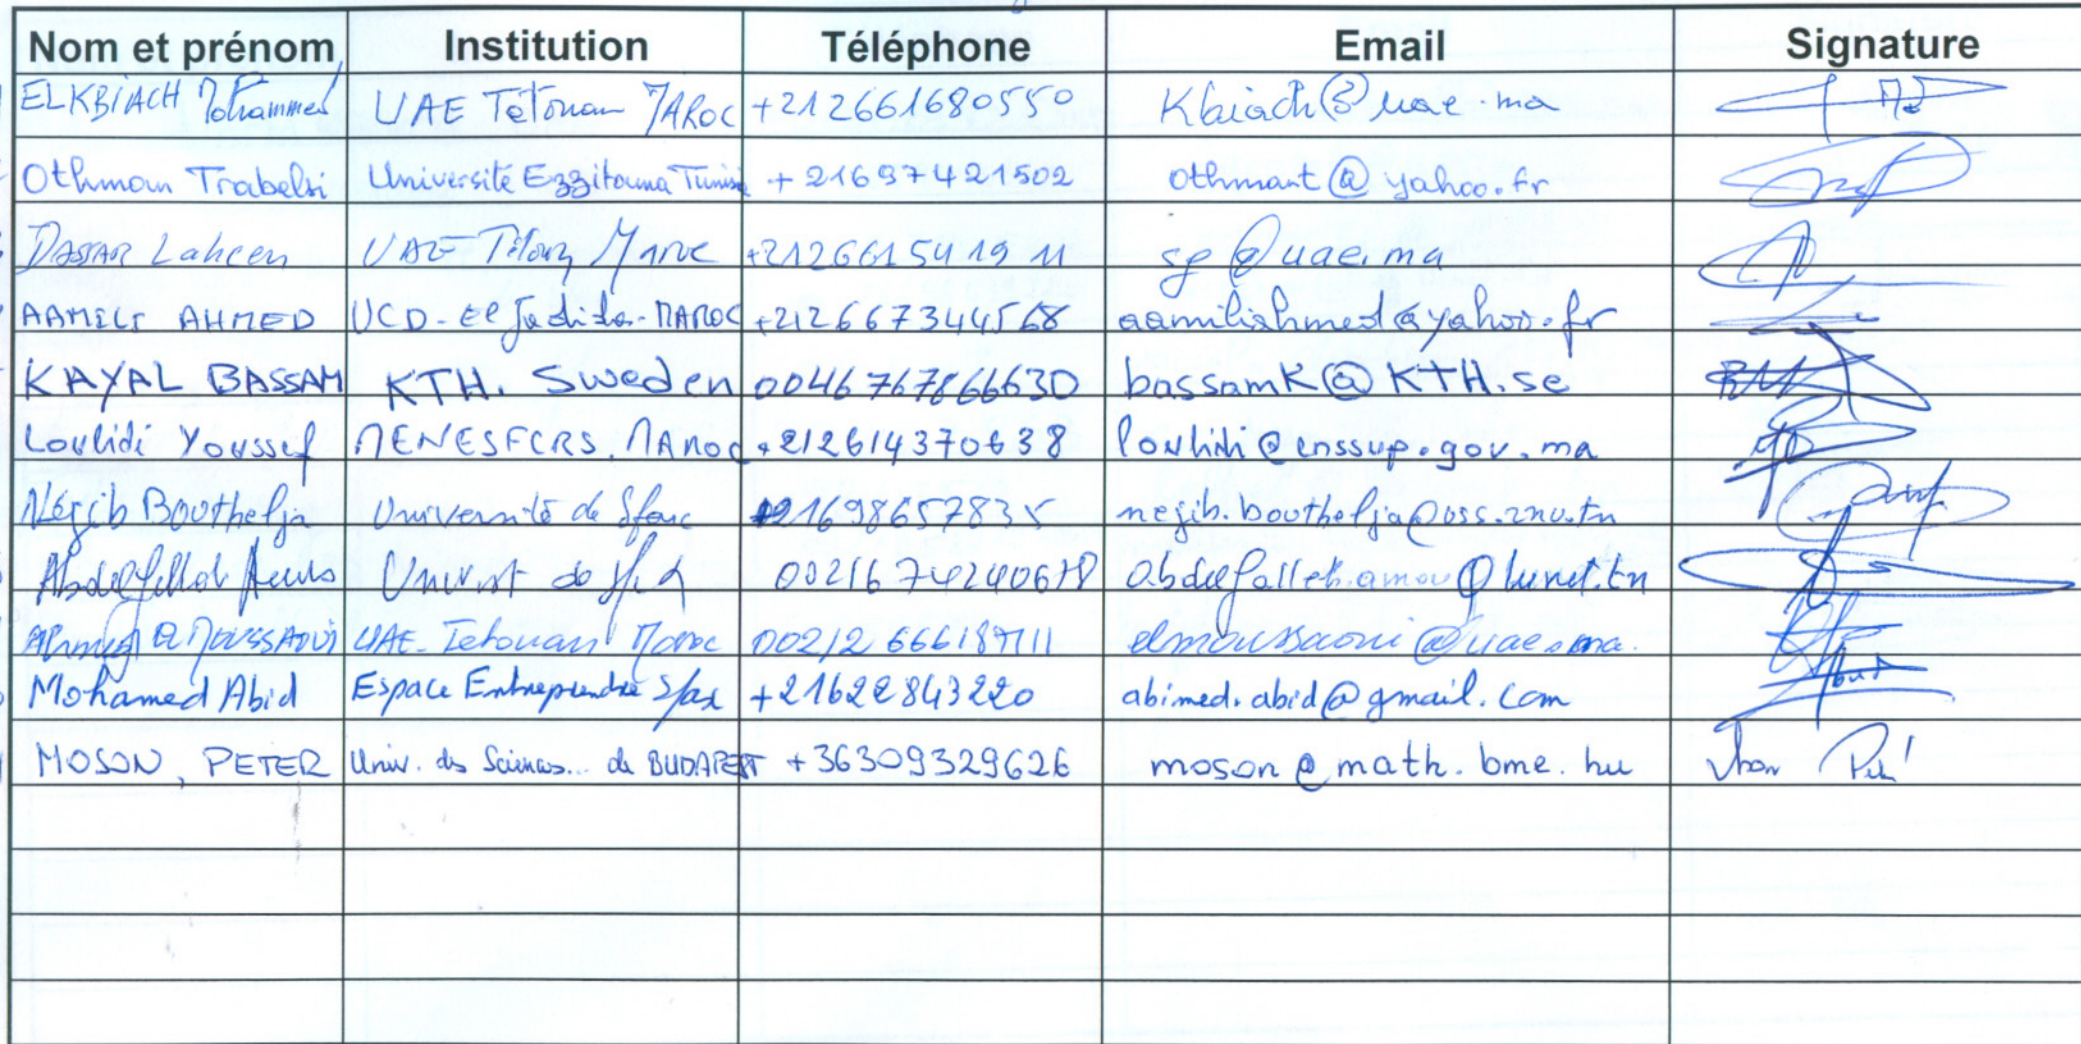 Nom et prénom Institution Téléphone Email Signature
ELKBIACH Mohammed UAE Tétouan MAROC +212661680550 Kbiach@uae.ma
Othman Trabelsi Université Ezzitouna Tunisie +21697421502 othmant@yahoo.fr
DASSAR Lahcen UAE Maroc +212661541911 sg@uae.ma
AAMILI AHMED UCD - El Jadida - MAROC +212667344568 aamiliahmed@yahoo.fr
KAYAL BASSAM KTH. Sweden 0046767866630 bassamK@KTH.se
Loulidi Youssef MENESFCRS, MAROC +212614370638 loulidi@enssup.gov.ma
Négib Bouthelja Université de Sfax 21698657835 negib.bouthelja@uss.rnu.tn
de 0021674240678
Ahmed El MOUSSAOUI UAE - Tetouan Maroc 00212666187111 elmoussaoui@uae.ma
Mohamed Abid Espace Entreprendre Sfax +21622843220 abimed.abid@gmail.com
MOSON, PETER Univ. des Sciences... de BUDAPEST +36309329626 moson@math.bme.hu